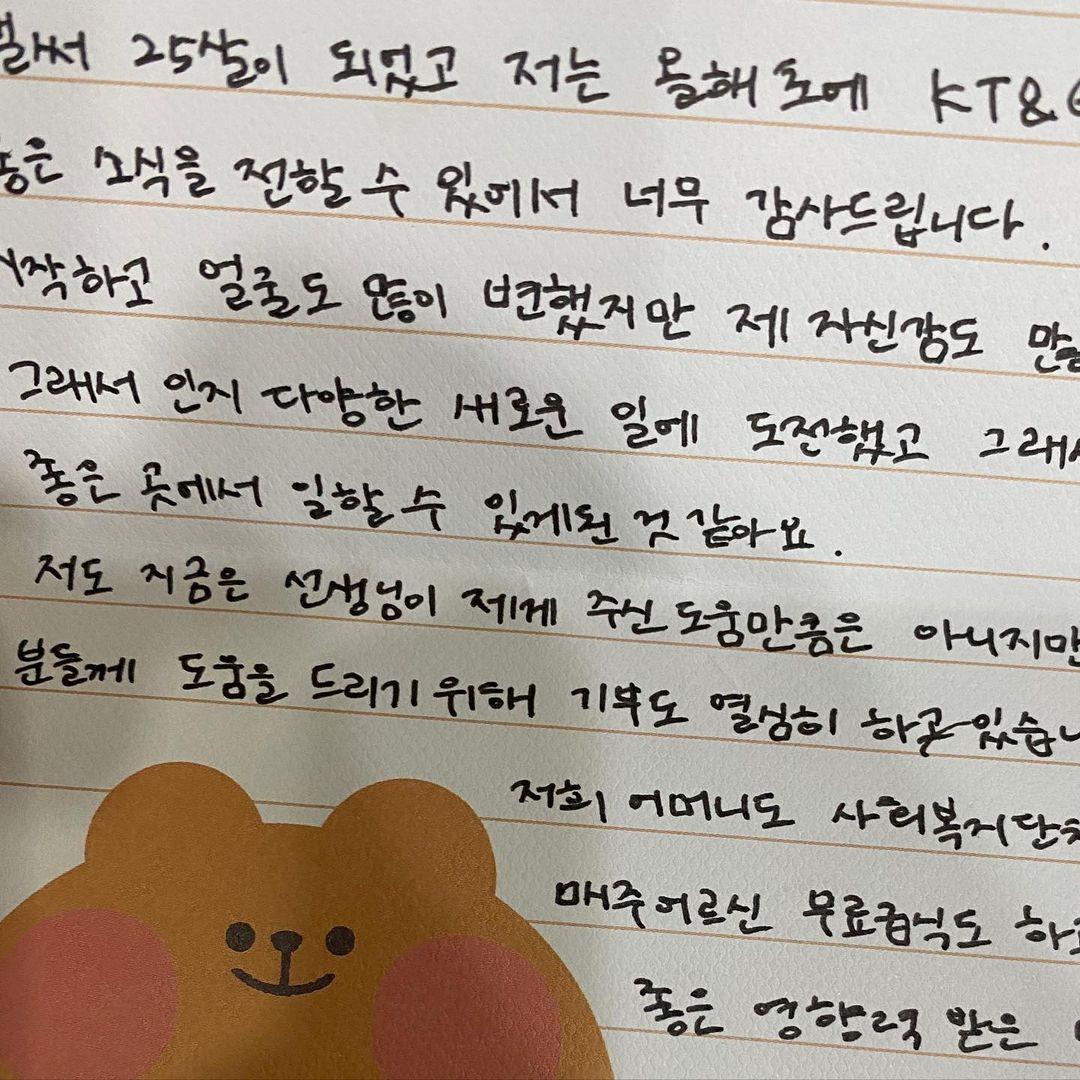 벌써 25살이 되었고 저는 올해 초에 KT&G
좋은 소식을 전할 수 있에서 너무 감사드립니다.
시작하고 얼굴도 많이 변했지만 제 자신감도 만
그래서 인지 다양한 새로운 일에 도전했고 그래서
좋은 곳에서 일할 수 있게된 것 같아요.
저도 지금은 선생님이 제게 주신 도움만큼은 아니지만
분들께 도움을 드리기 위해 기부도 열심히 하고 있습니
저희 어머니도 사회복지단체
매주 어르신 무료급식도 하고
좋은 영향력 받은